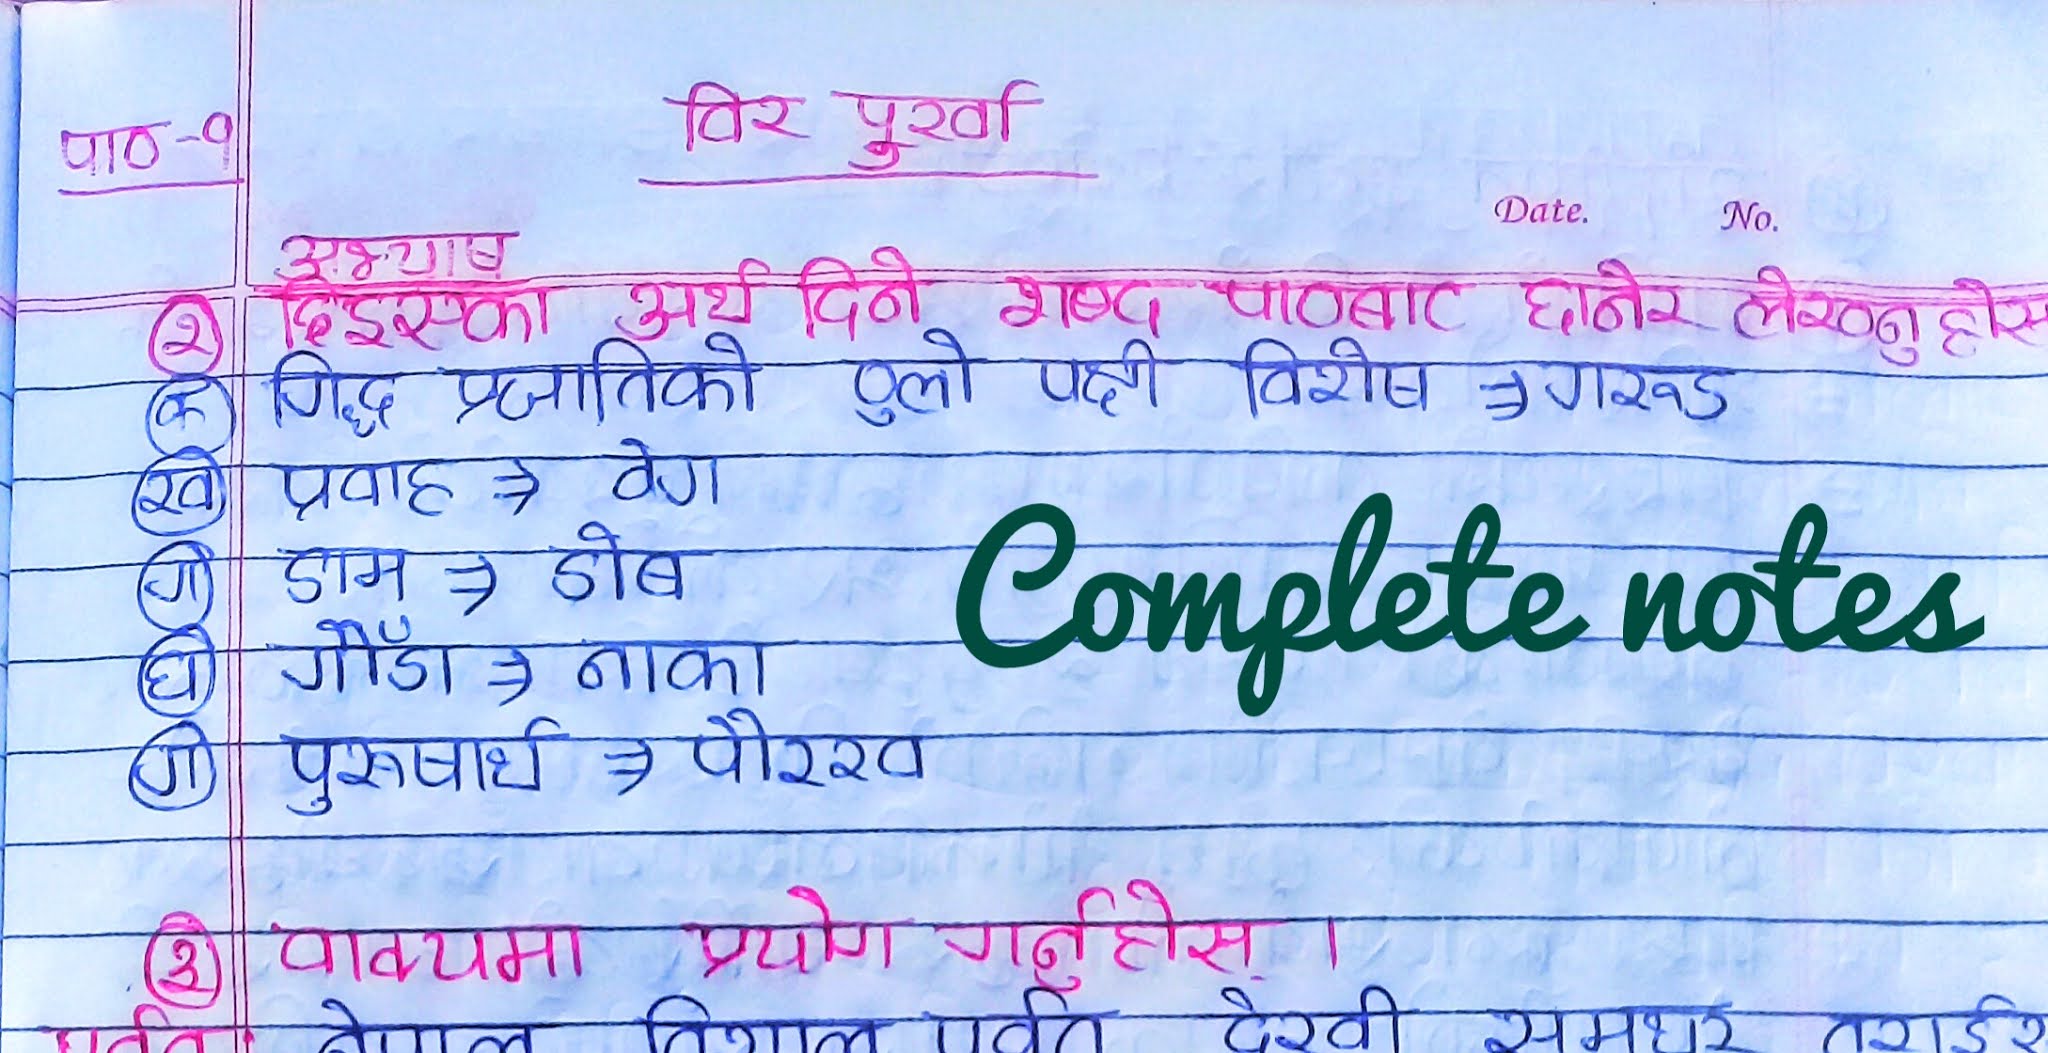 पाठ-१
विर पुर्खा
Date. No.
अभ्याष
२ दिइएका अर्थ दिने शब्द पाठबाट छानेर लेख्नुहोस
क गिद्ध प्रजातिको ठुलो पक्षी विशेष ⇒ गरूड
ख प्रवाह ⇒ वेग
ग डाम ⇒ डोब
Complete notes
घ गौँडा ⇒ नाका
ग पुरूषार्थ ⇒ पौरख
३ वाक्यमा प्रयोग गर्नुहोस् ।
पर्वत: नेपाल विशाल पर्वत देखी समथर